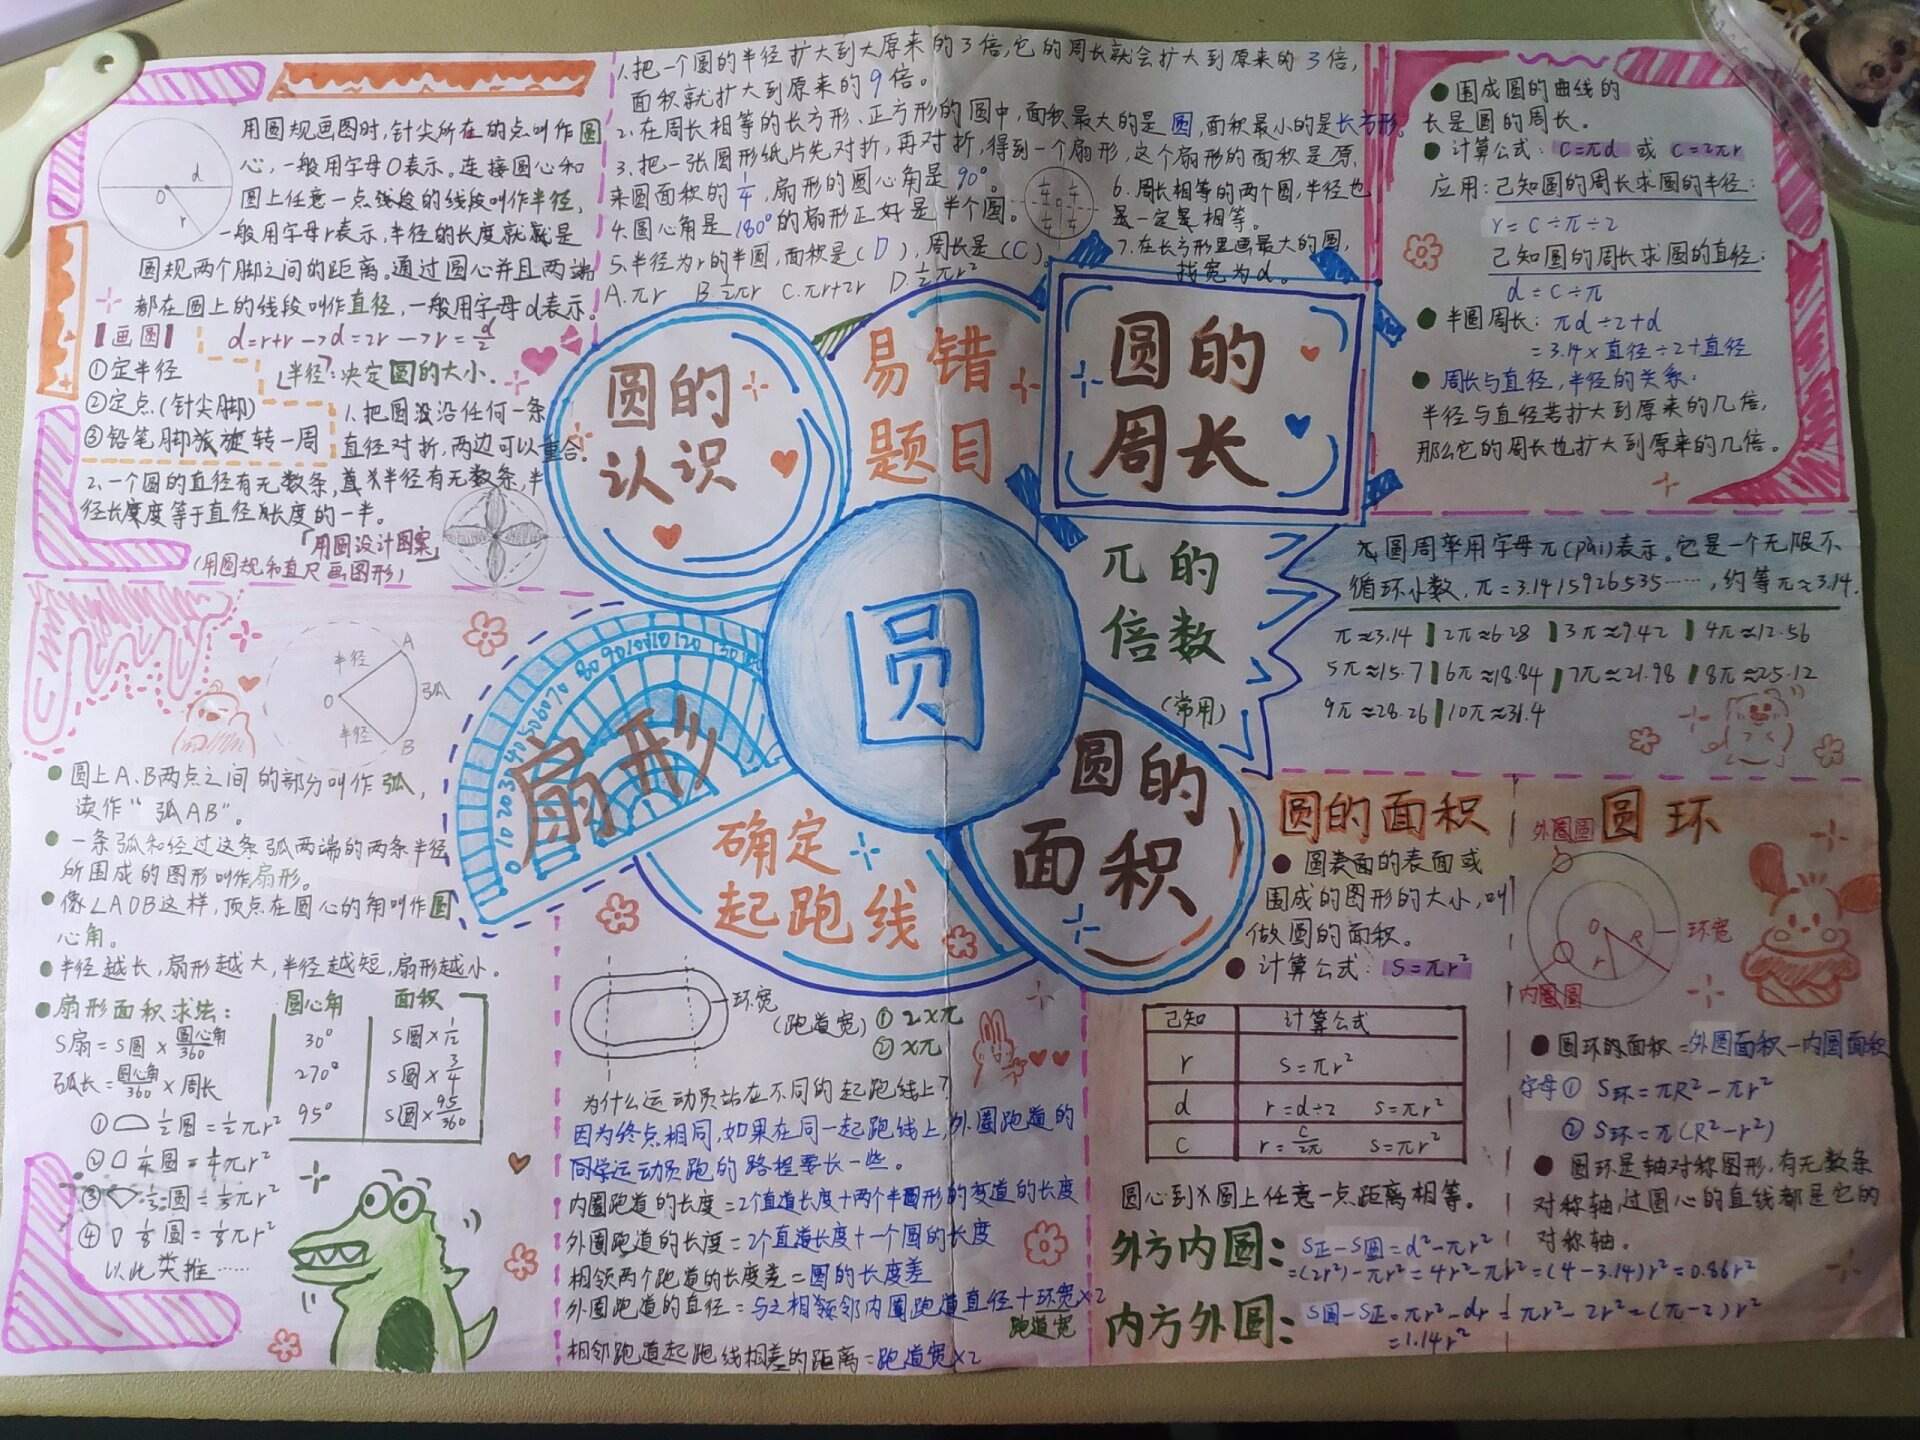 用圆规画图时,针尖所在的点叫作圆
心,一般用字母O表示。连接圆心和
圆上任意一点线段的线段叫作半径,
一般用字母r表示,半径的长度就就是
圆规两个脚之间的距离。通过圆心并且两端
都在圆上的线段叫作直径,一般用字母d表示。
d
O
r
画圆
d=r+r→d=2r→r=d/2
①定半径
半径:决定圆的大小.
②定点(针尖脚)
③铅笔脚旋旋转一周
1.把圆没沿任何一条
直径对折,两边可以重合.
2.一个圆的直径有无数条,半径有无数条,半
径长度度等于直径长度的一半。
「用圆设计图案」
(用圆规和直尺画图形)
1.把一个圆的半径扩大到大原来的3倍,它的周长就会扩大到原来的3倍,
面积就扩大到原来的9倍。
2.在周长相等的长方形、正方形的圆中,面积最大的是圆,面积最小的是长方形。
3.把一张圆形纸片先对折,再对折,得到一个扇形,这个扇形的面积是原
来圆面积的1/4,扇形的圆心角是90°。
4.圆心角是180°的扇形正好是半个圆。
5.半径为r的半圆,面积是(D),周长是(C)。
A.πr B.½πr C.πr+2r D.½πr²
6.周长相等的两个圆,半径也
是一定是相等。
7.在长方形里画最大的圆,
找宽为d。
围成圆的曲线的
长是圆的周长。
计算公式:C=πd 或 C=2πr
应用:已知圆的周长求圆的半径:
r=C÷π÷2
已知圆的周长求圆的直径:
d=C÷π
半圆周长:πd÷2+d
=3.14×直径÷2+直径
周长与直径,半径的关系:
半径与直径若扩大到原来的几倍,
那么它的周长也扩大到原来的几倍。
圆的
认识
易错
题目
圆的
周长
圆
π的
倍数
(常用)
扇形
0 10 20 30 40 50 60 70 80 90 100 110 120
确定
起跑线
圆的
面积
圆周率用字母π(pài)表示。它是一个无限不
循环小数,π=3.1415926535……,约等π≈3.14.
π≈3.14 2π≈6.28 3π≈9.42 4π≈12.56
5π≈15.7 6π≈18.84 7π≈21.98 8π≈25.12
9π≈28.26 10π≈31.4
半径
A
O
弧
半径
B
圆上A、B两点之间的部分叫作弧,
读作“弧AB”。
一条弧和经过这条弧两端的两条半径
所围成的图形叫作扇形。
像∠AOB这样,顶点在圆心的角叫作圆
心角。
半径越长,扇形越大,半径越短,扇形越小.
扇形面积求法:
S扇=S圆×圆心角/360
弧长=圆心角/360×周长
圆心角 面积
30° S圆×1/12
270° S圆×3/4
95° S圆×95/360
① ½圆=½πr²
② ¼圆=¼πr²
③ ⅓圆=⅓πr²
④ ⅛圆=⅛πr²
以此类推……
环宽
(跑道宽)
①2×π
②×π
为什么运动员站在不同的起跑线上?
因为终点相同,如果在同一起跑线上,外圈跑道的
同学运动员跑的路程要长一些。
内圈跑道的长度=2个直道长度+两个半圆形的弯道的长度
外圈跑道的长度=2个直道长度+一个圆的长度
相领两个跑道的长度差=圆的长度差
外圈跑道的直径=与之相领邻内圈跑道直径+环宽×2
跑道宽
相邻跑道起跑线相差的距离=跑道宽×2
圆的面积
圆表面的表面或
围成的图形的大小,叫
做圆的面积。
计算公式:S=πr²
已知 计算公式
r S=πr²
d r=d÷2 S=πr²
C r=C/2π S=πr²
圆心到圆上任意一点距离相等。
外方内圆:
S正-S圆=d²-πr²
=(2r²)-πr²=4r²-πr²=(4-3.14)r²=0.86r²
内方外圆:
S圆-S正=πr²-dr=πr²-2r²=(π-2)r²
=1.14r²
圆环
外圈圆
O
R
r
环宽
内圈圆
圆环的面积=外圆面积-内圆面积
字母① S环=πR²-πr²
② S环=π(R²-r²)
圆环是轴对称图形,有无数条
对称轴,过圆心的直线都是它的
对称轴。